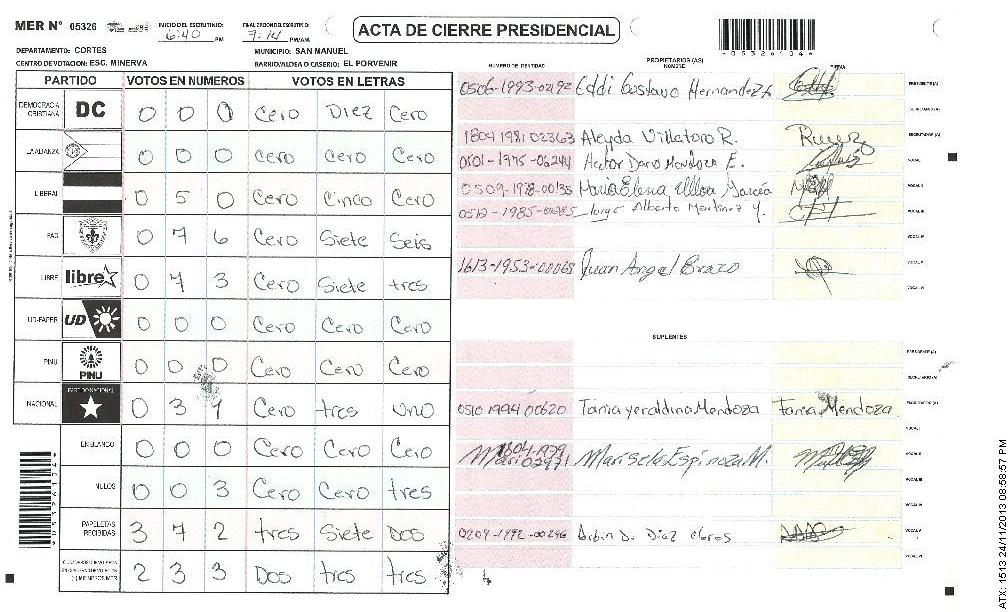 MER N° 05326 INICIO DEL ESCRUTINIO: 6:40 PM FINALIZACION DEL ESCRUTINIO: 7:14 PM/AM ACTA DE CIERRE PRESIDENCIAL
DEPARTAMENTO: CORTES MUNICIPIO: SAN MANUEL
CENTRO DE VOTACION: ESC. MINERVA BARRIO/ALDEA O CASERIO: EL PORVENIR
PARTIDO VOTOS EN NUMEROS VOTOS EN LETRAS
DEMOCRACIA CRISTIANA DC 0 0 0 Cero Diez Cero
LA ALIANZA 0 0 0 Cero Cero Cero
LIBERAL 0 5 0 Cero Cinco Cero
PAC 0 7 6 Cero Siete Seis
LIBRE libre 0 7 3 Cero Siete tres
UD-FAPER UD 0 0 0 Cero Cero Cero
PINU PINU 0 0 0 Cero Cero Cero
NACIONAL PARTIDO NACIONAL 0 3 1 Cero tres uno
EN BLANCO 0 0 0 Cero Cero Cero
NULOS 0 0 3 Cero Cero tres
PAPELETAS RECIBIDAS 3 7 2 tres Siete Dos
2 3 3 Dos tres tres
PROPIETARIOS (AS)
NUMERO DE IDENTIDAD NOMBRE FIRMA
0506-1993-0292 Eddi Gustavo Hernandez PRESIDENTE (A)
SECRETARIO (A)
1804 1981 02363 Aleyda Villatoro R. SECRETARIO (A)
0501-1975-06244 Hector Dario Mendoza E. VOCAL I
0509-1978-00135 Maria Elena Ulloa Garcia VOCAL II
0512-1985-00285 Jorge Alberto Martinez y. VOCAL III
1613-1953-00068 Juan Angel Brazo VOCAL V
SUPLENTES
PRESIDENTE (A)
SECRETARIO (A)
0510 1994 00620 Tania yeraldina Mendoza Tania Mendoza
VOCAL I
1804-1979 02971 Marisela Espinoza M. VOCAL II
VOCAL III
0209-1992-00296 Arbin D. Diaz
ATX: 1513 24/11/2013 08:58:57 PM